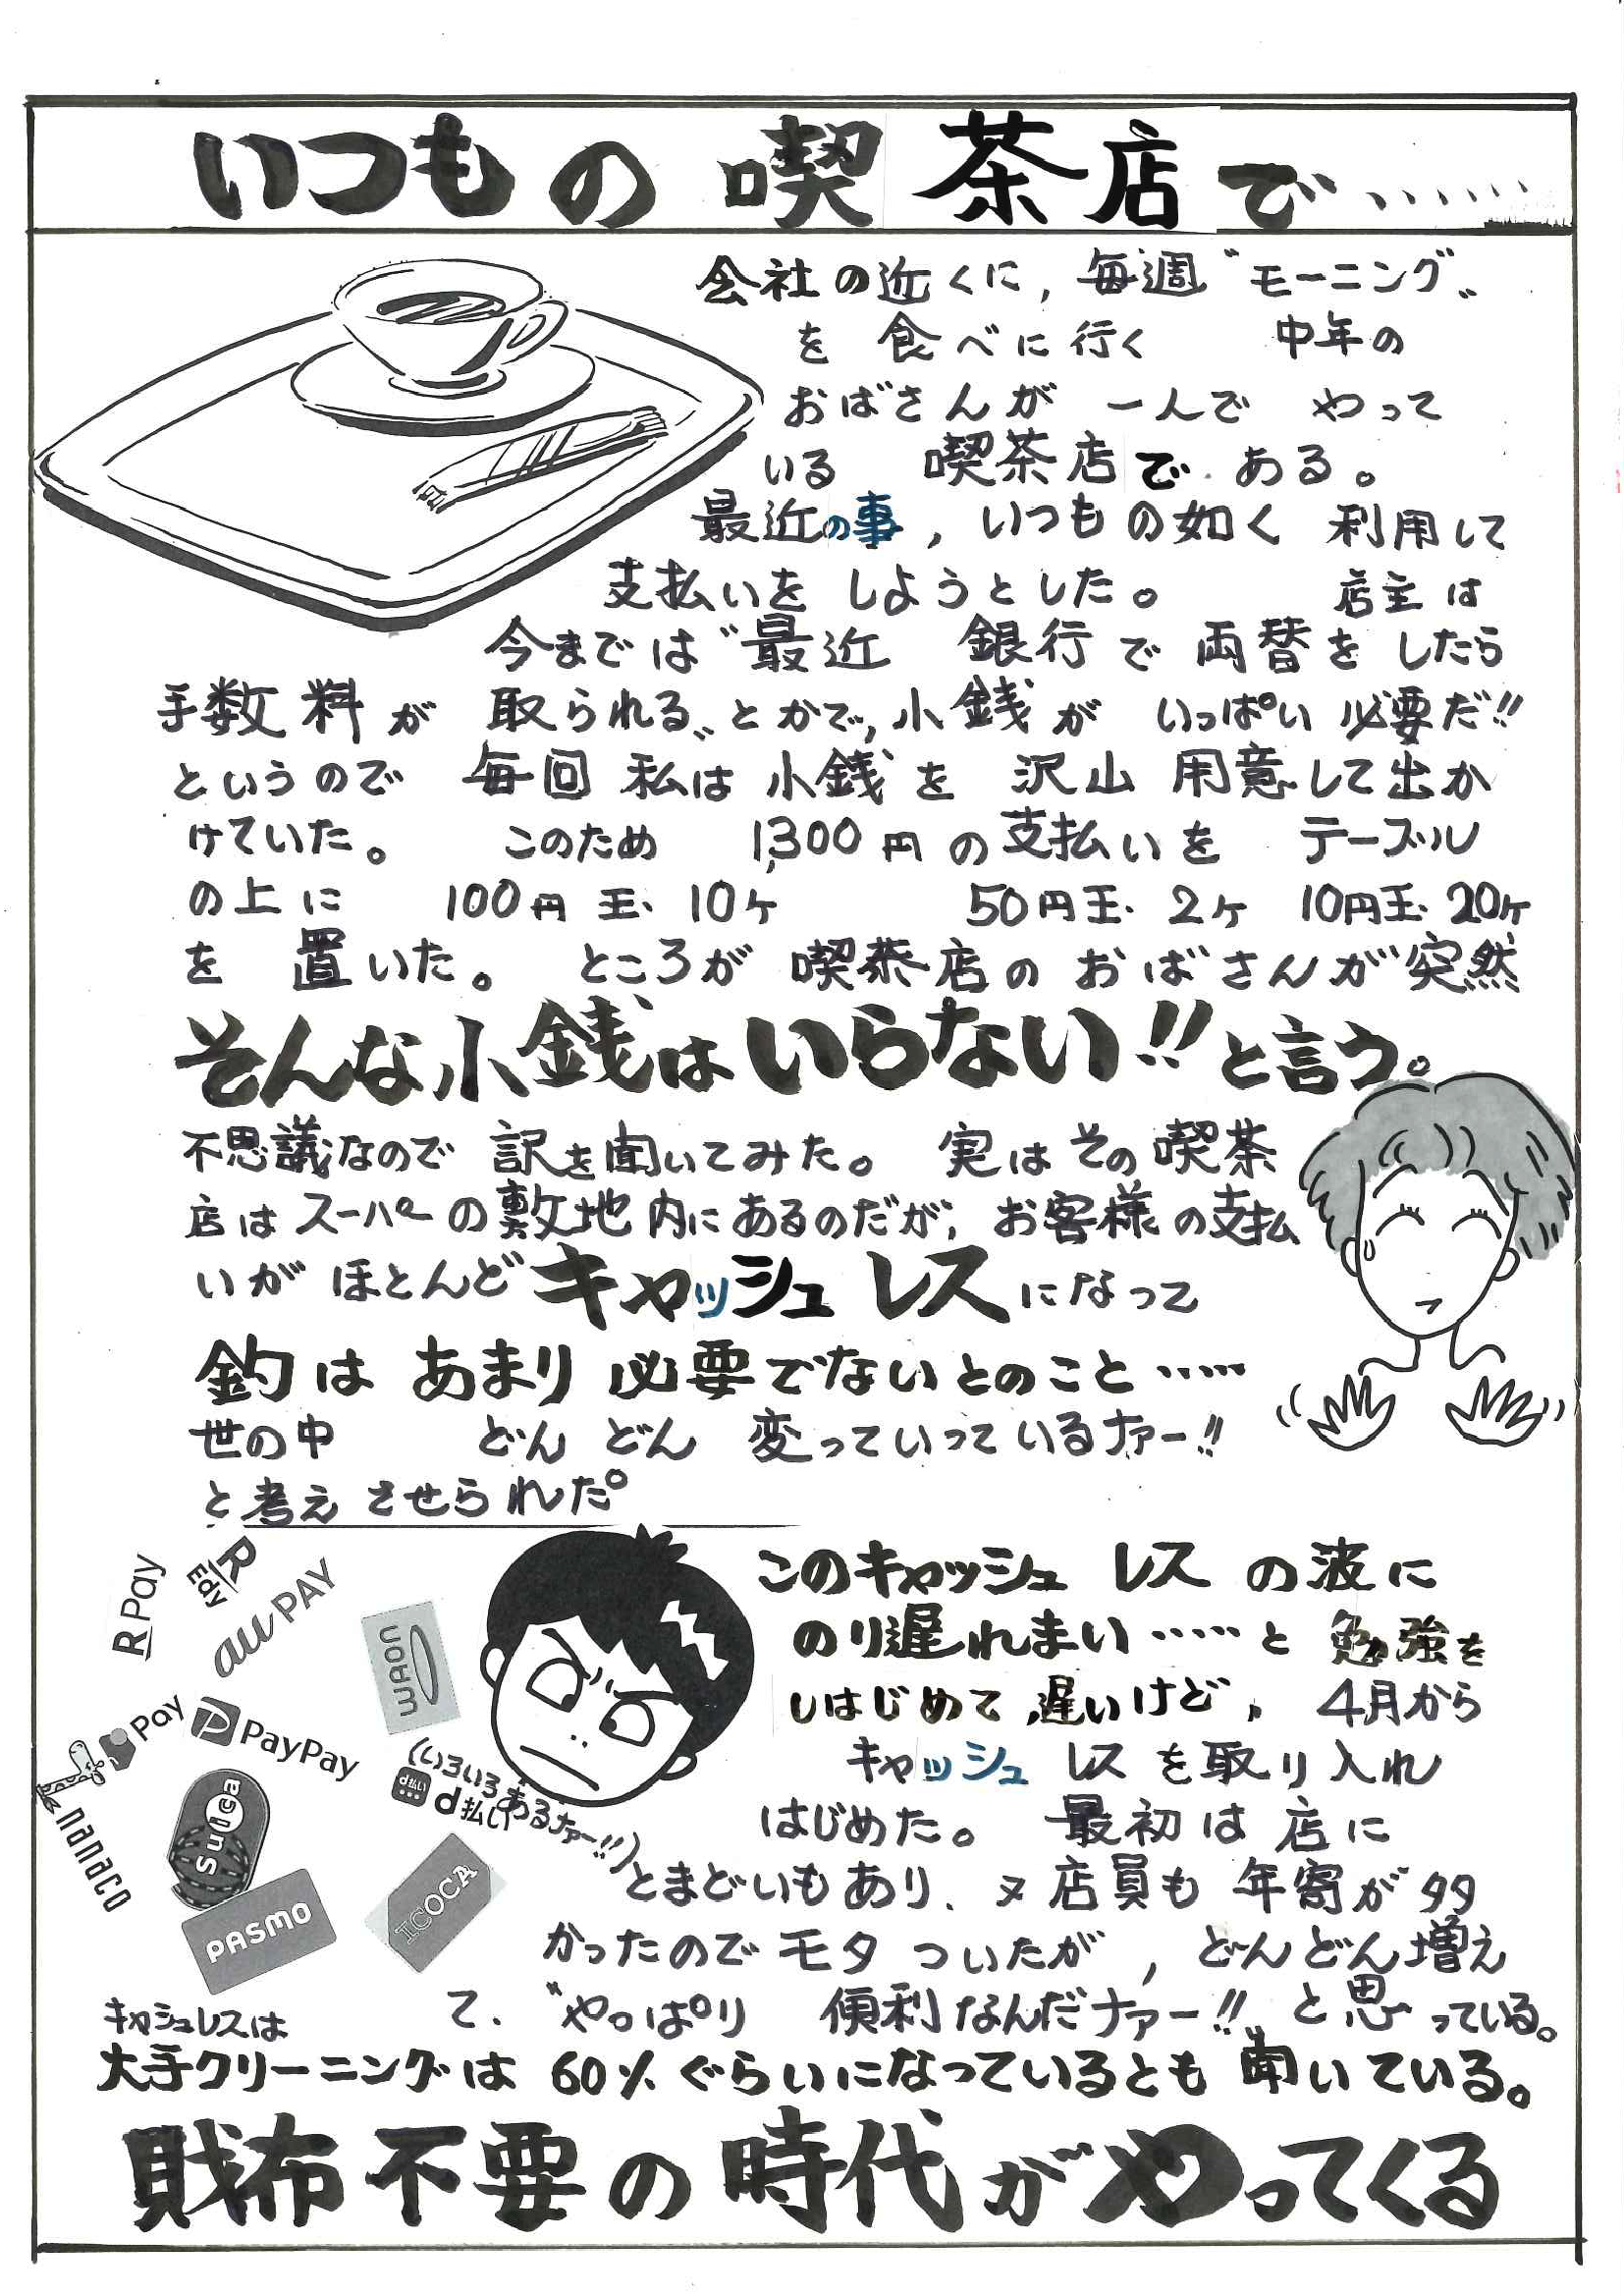 いつもの喫茶店で……
会社の近くに，毎週〝モーニング〟
を食べに行く 中年の
おばさんが 一人で やって
いる 喫茶店で ある。
最近の事，いつもの如く 利用して
支払いを しようとした。 店主は
今までは〝最近 銀行で両替をしたら
手数料が 取られる〟とかで，小銭が いっぱい必要だ!!
というので 毎回 私は小銭を 沢山 用意して出か
けていた。 このため 1,300円の支払いを テーブル
の上に 100円玉・10ヶ 50円玉・2ヶ 10円玉・20ヶ
を 置いた。 ところが 喫茶店の おばさんが突然
そんな小銭はいらない!!と言う。
不思議なので 訳を聞いてみた。 実はその喫茶
店はスーパーの敷地内にあるのだが，お客様の支払
いが ほとんど キャッシュレスになって
釣は あまり 必要でないとのこと……
世の中 どんどん 変っていっているナァー!!
と考えさせられた。
このキャッシュレスの波に
のり遅れまい……と 勉強を
しはじめて遅いけど， 4月から
キャッシュレスを取り入れ
はじめた。 最初は店に
とまどいもあり、又店員も 年寄が多
かったのでモタついたが，どんどん増え
て、〝やっぱり 便利なんだナァー!!〟と思っている。
R Pay
R Edy
au PAY
WAON
Pay
PayPay
(いろいろあるナァー!!)
d払い
d払い
nanaco
Suica
PASMO
ICOCA
キャシュレスは
大手クリーニングは 60%ぐらいになっているとも聞いている。
財布不要の時代がやってくる